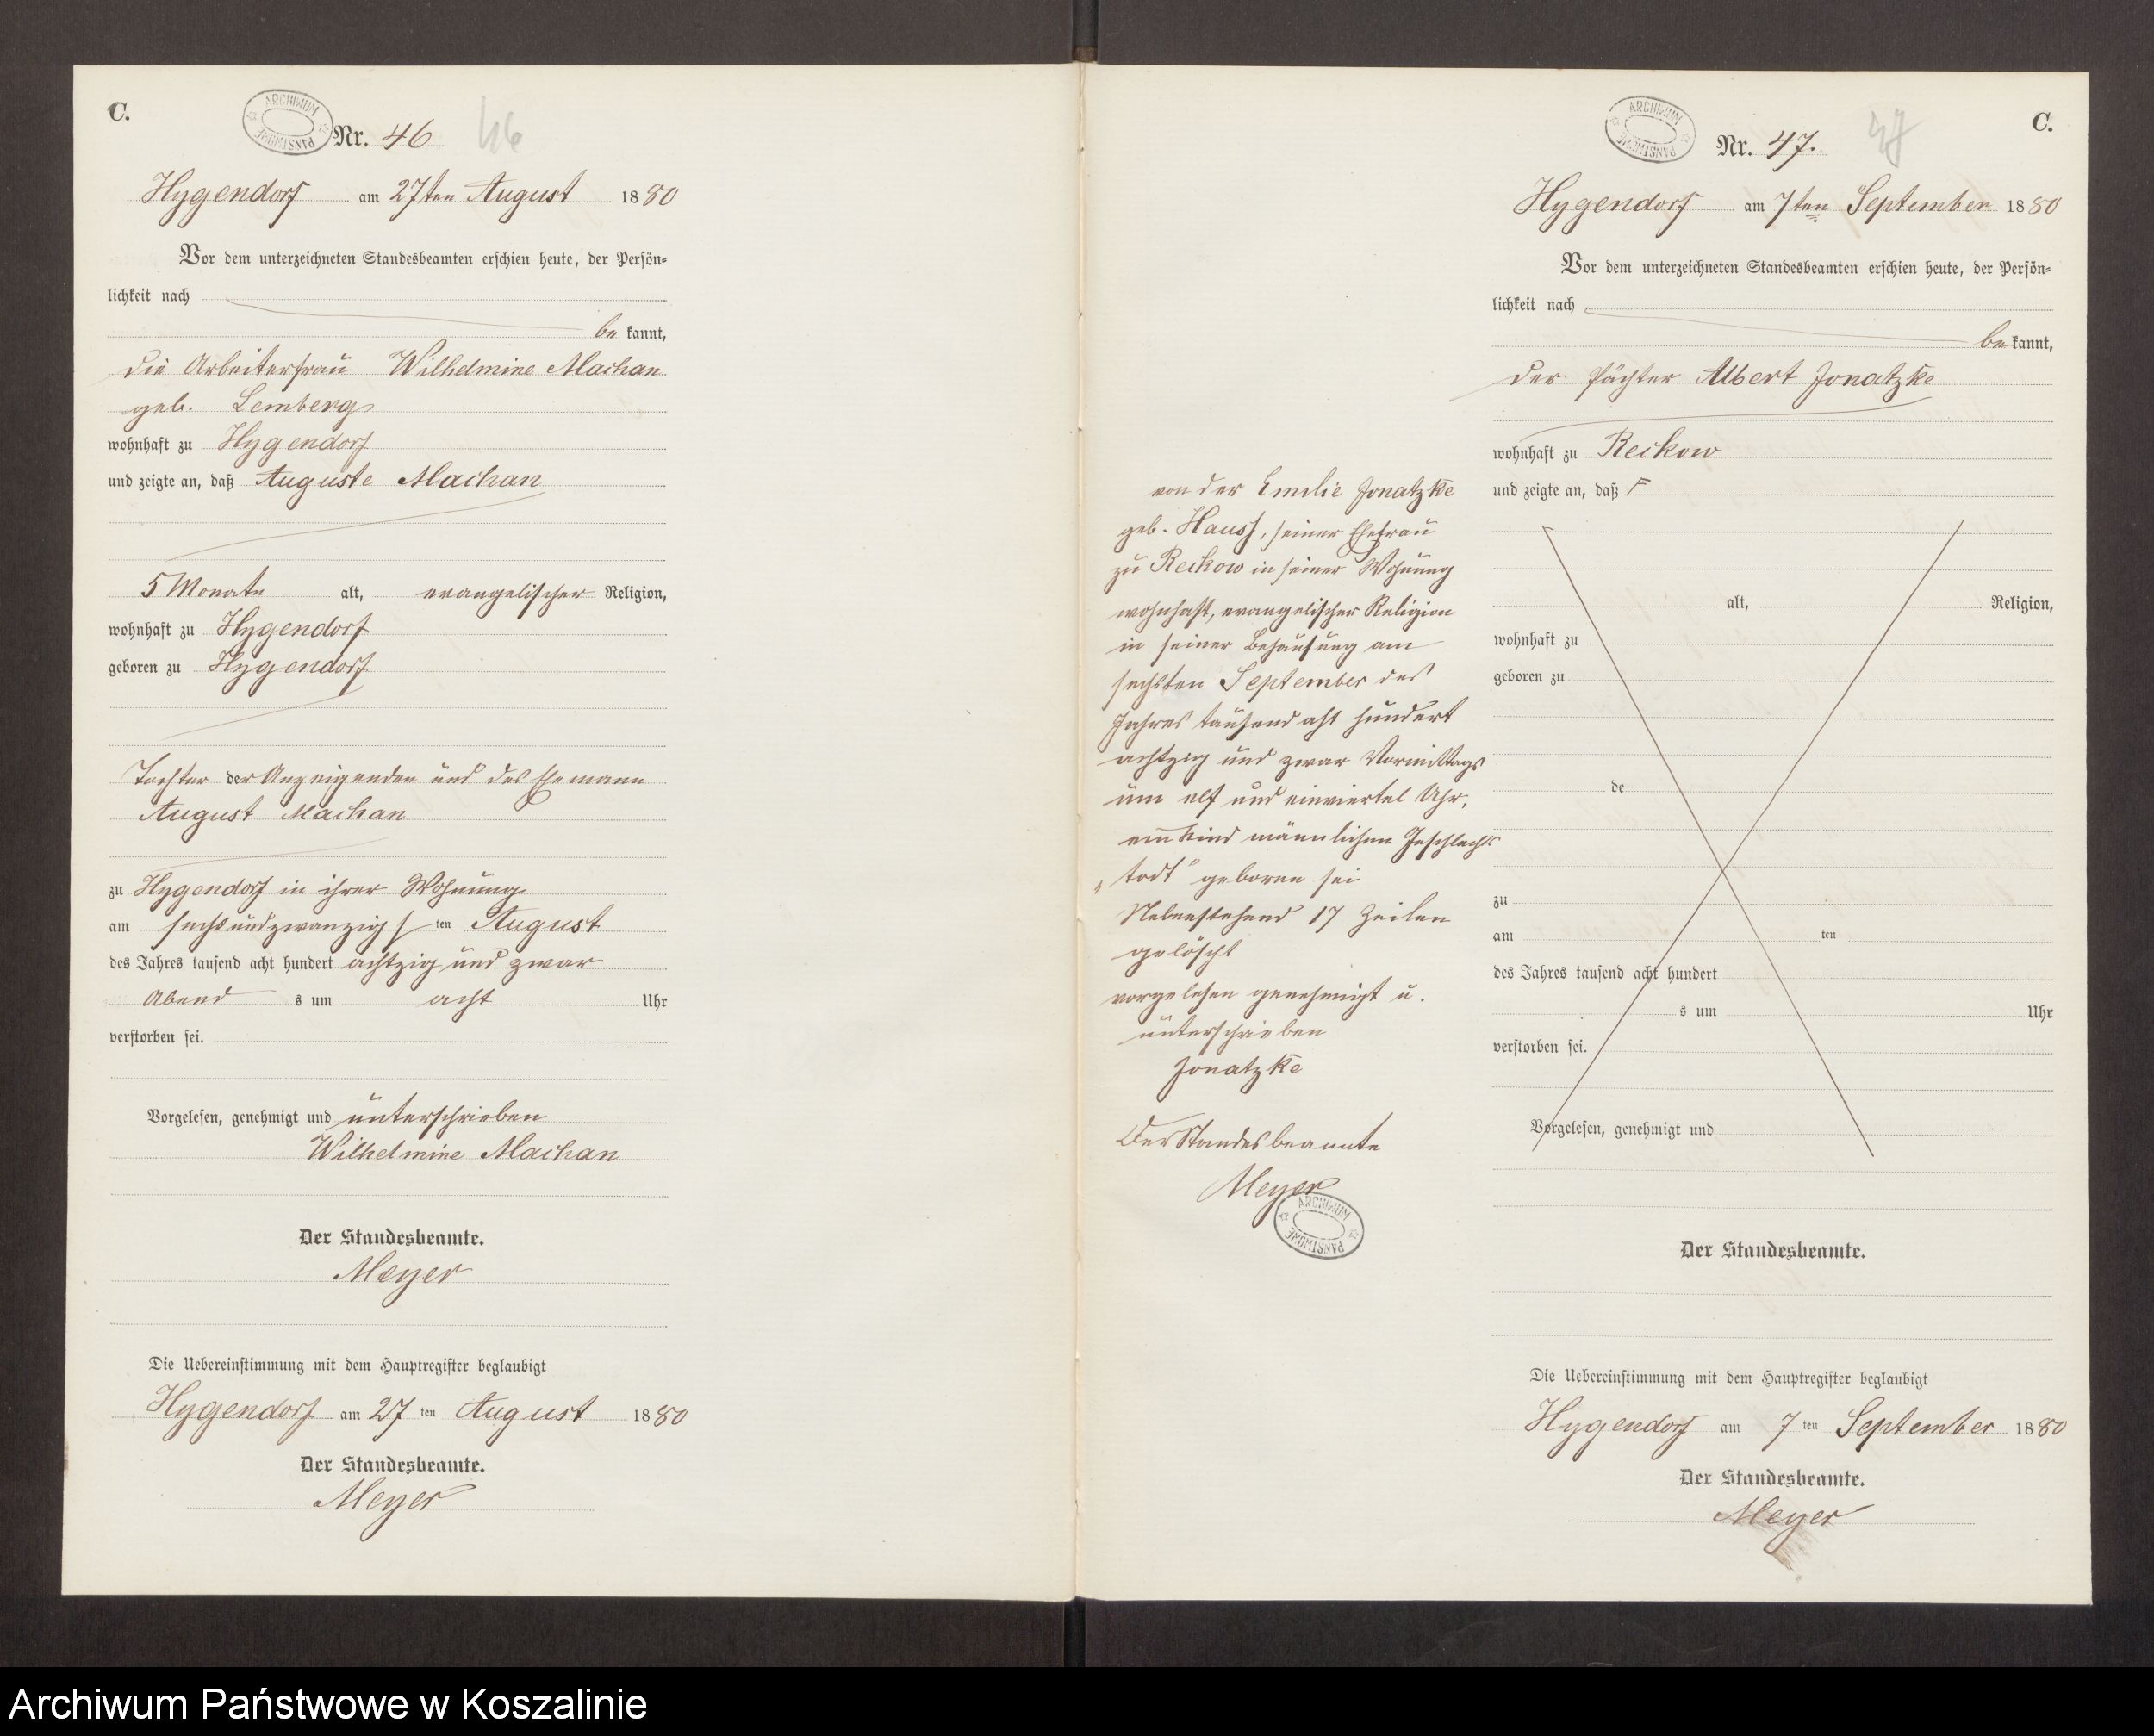 C.
ARCHIWUM PAŃSTWOWE
Nr. 46 46
Hygendorf am 27ten August 1880
Vor dem unterzeichneten Standesbeamten erschien heute, der Persön-
lichkeit nach
be kannt,
die Arbeiterfrau Wilhelmine Machan
geb. Lemberg
wohnhaft zu Hygendorf
und zeigte an, daß Auguste Machan
5 Monate alt, evangelischer Religion,
wohnhaft zu Hygendorf
geboren zu Hygendorf
Tochter der Anzeigenden und des Ehemann
August Machan
zu Hygendorf in ihrer Wohnung
am sechsundzwanzigsten August
des Jahres tausend acht hundert achtzig und zwar
Abend s um acht Uhr
verstorben sei.
Vorgelesen, genehmigt und unterschrieben
Wilhelmine Machan
Der Standesbeamte.
Meyer
Die Uebereinstimmung mit dem Hauptregister beglaubigt
Hygendorf am 27 ten August 1880
Der Standesbeamte.
Meyer
C.
ARCHIWUM PAŃSTWOWE
Nr. 47. 47
Hygendorf am 7ten September 1880
Vor dem unterzeichneten Standesbeamten erschien heute, der Persön-
lichkeit nach
be kannt,
der Pächter Albert Jonatzke
wohnhaft zu Reckow
und zeigte an, daß F
von der Emilie Jonatzke
geb. Hauss, seiner Ehefrau
zu Reckow in seiner Wohnung
wohnhaft, evangelischer Religion
in seiner Behausung am
sechsten September des
Jahres tausend aht hundert
achtzig und zwar Vormittags
um elf und einviertel Uhr,
ein Kind männlichen Geschlechts
„todt" geboren sei
Nebenstehend 17 Zeilen
gelöscht
vorgelesen genehmigt u.
unterschrieben
Jonatzke
Der Standesbeamte
Meyer
ARCHIWUM PAŃSTWOWE
alt, Religion,
wohnhaft zu
geboren zu
de
zu
am ten
des Jahres tausend acht hundert
s um Uhr
verstorben sei.
Vorgelesen, genehmigt und
Der Standesbeamte.
Die Uebereinstimmung mit dem Hauptregister beglaubigt
Hygendorf am 7 ten September 1880
Der Standesbeamte.
Meyer
Archiwum Państwowe w Koszalinie